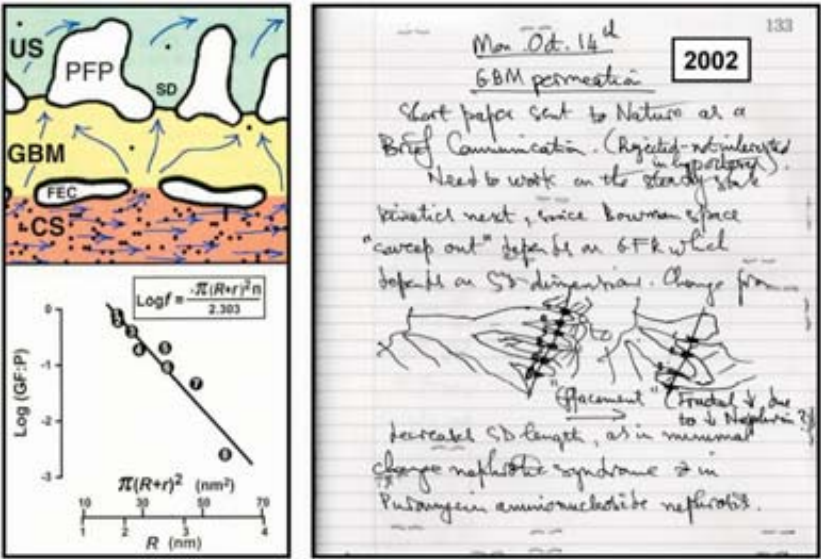 US
PFP
SD
GBM
FEC
CS
Logf = -π(R+r)²n
2.303
Log (GF:P)
0
-1
-2
-3
5
6
7
8
π(R+r)² (nm²)
10 30 50 70
1 2 3 4
R (nm)
133
Mon Oct. 14th
2002
GBM permeation
Short paper sent to Nature as a
Brief Communication. (Rejected - not interested
in hypotheses).
Need to work on the steady state
kinetics next, since Bowman space
"sweep out" depends on GFR which
depends on SD dimensions. Change from
"Effacement" (Fractal ↓ due
to ↓ Nephrin?)
decreases SD length, as in minimal
change nephrotic syndrome & in
Puromycin aminonucleoside nephrosis.